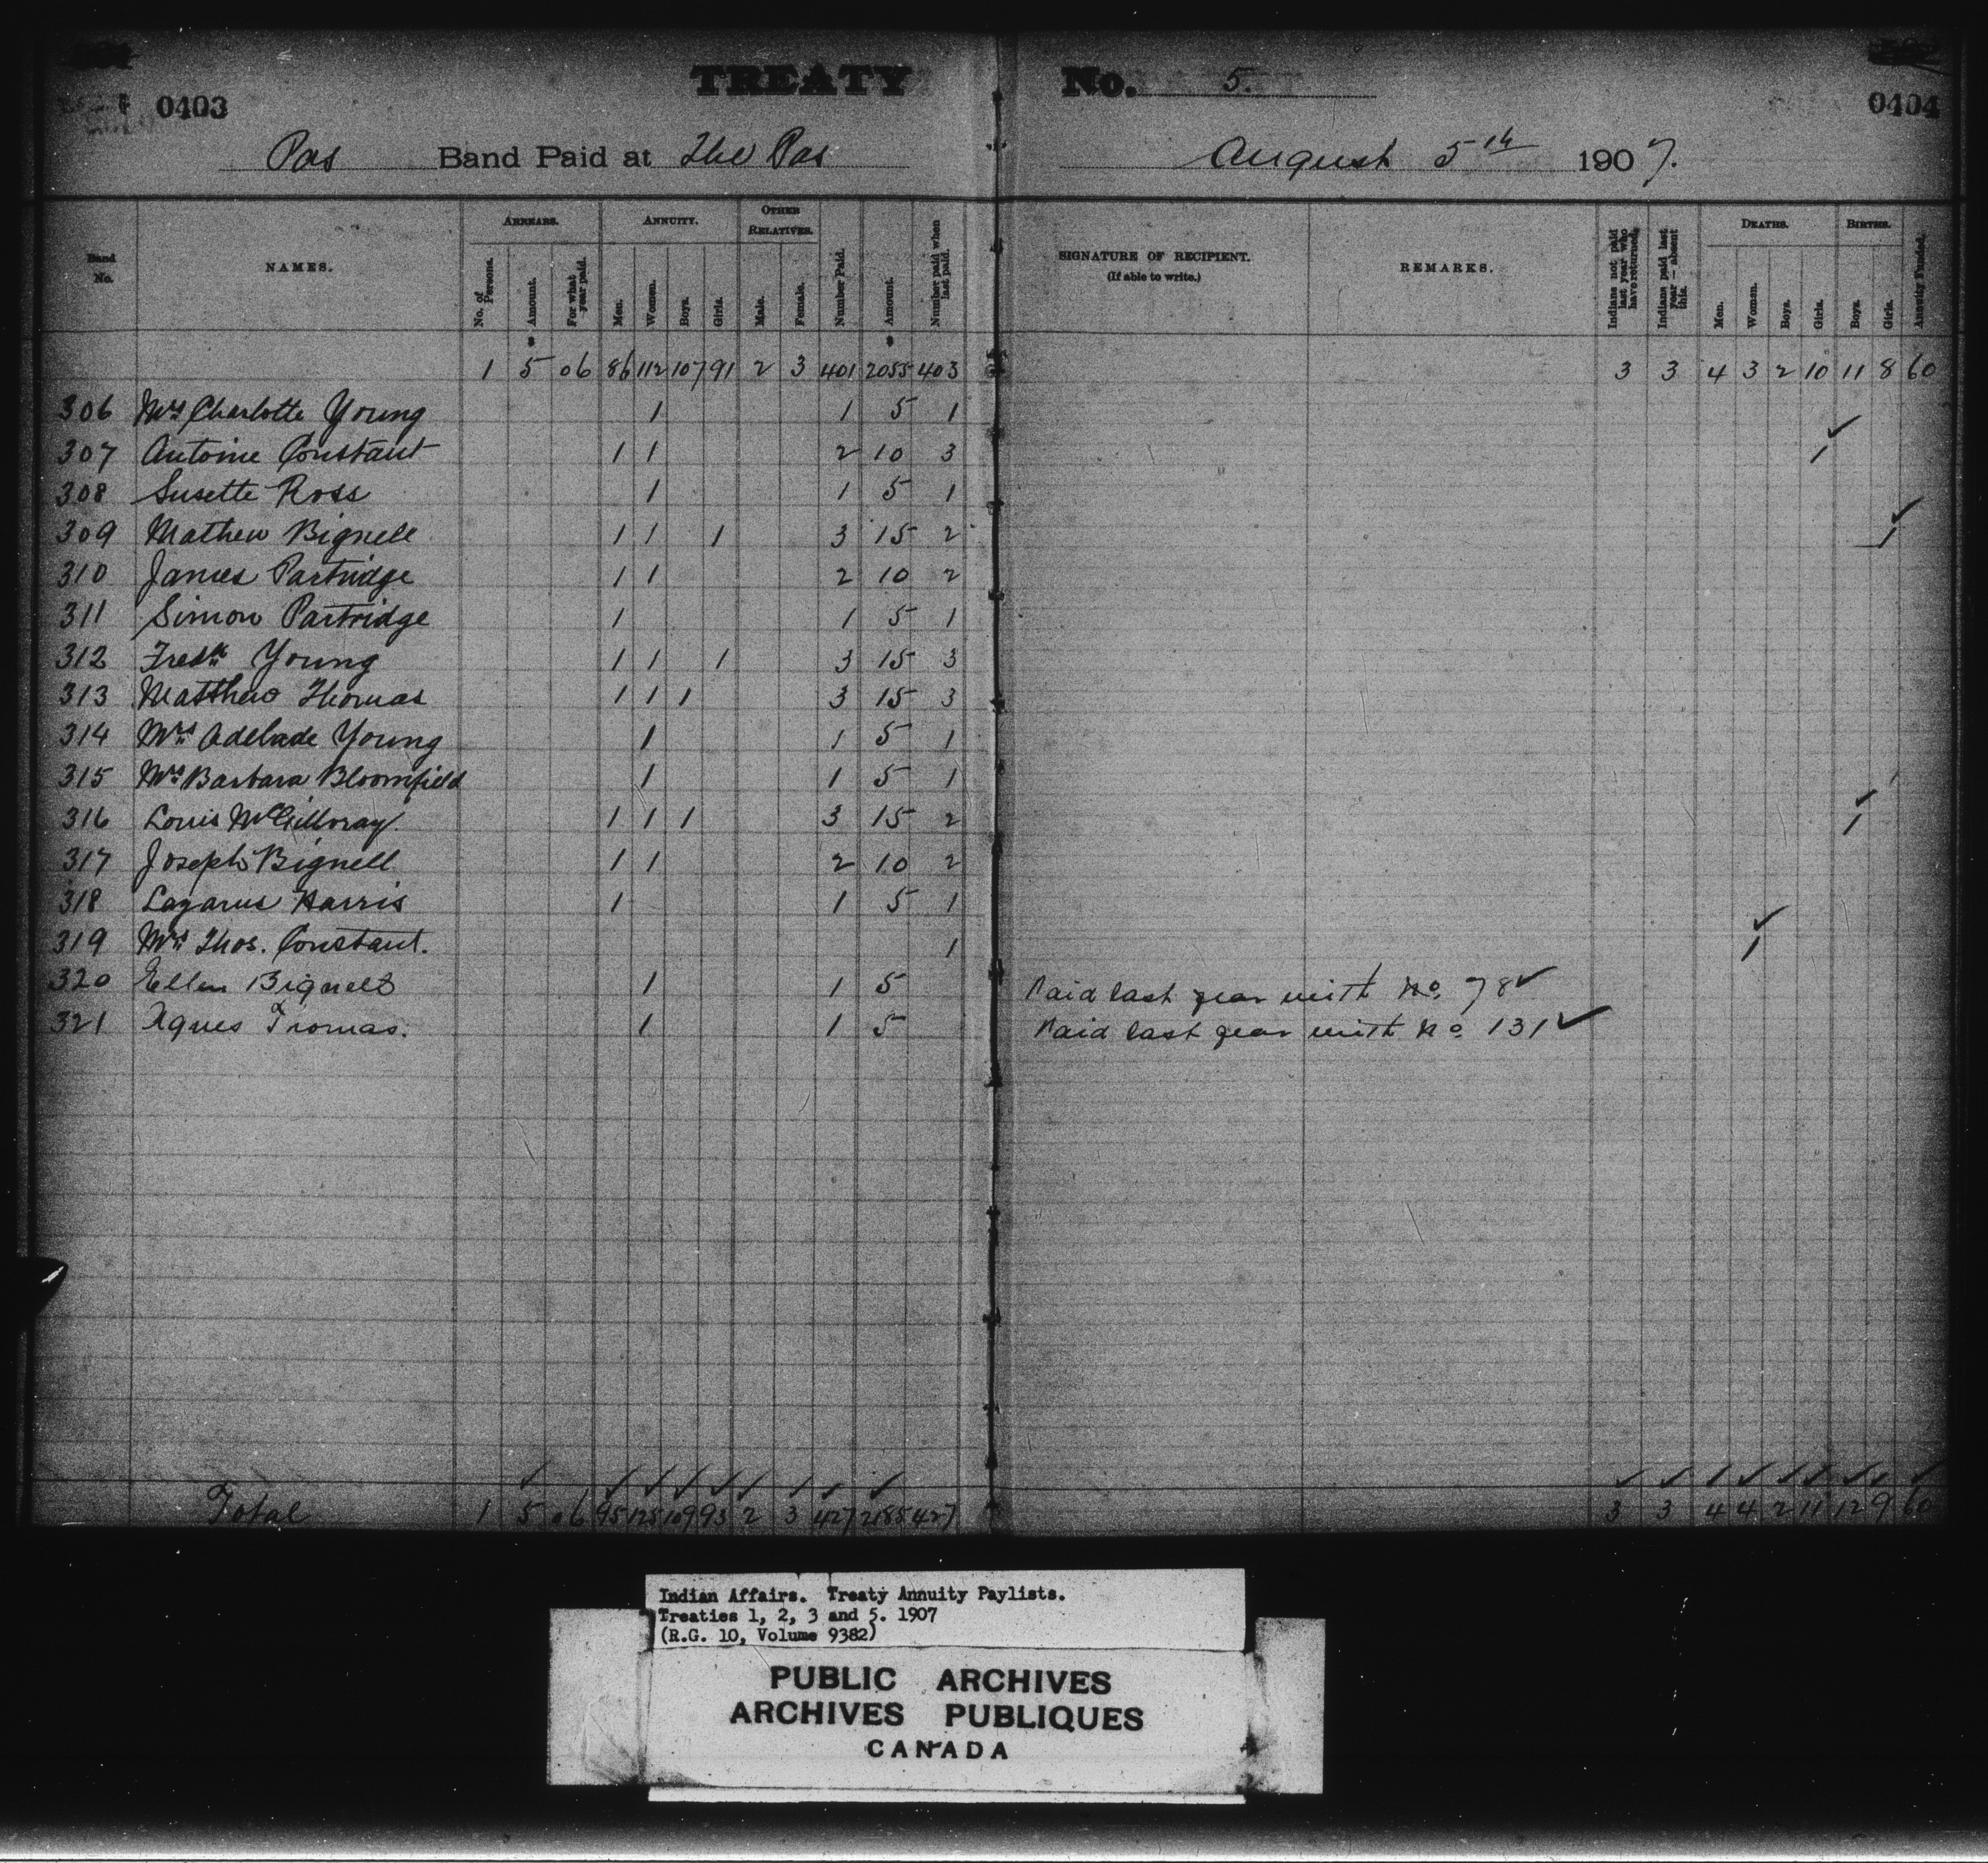 TREATY No. 5.
0403 0404
Pas Band Paid at The Pas August 5th 1907.
Band No. NAMES. ARREARS. No. of Persons. Amount. For what year paid. ANNUITY. Men. Women. Boys. Girls. OTHER RELATIVES. Male. Female. Number Paid. Amount. Number paid when last paid. SIGNATURE OF RECIPIENT. (If able to write.) REMARKS. Indians not paid last year who have returned. Indians paid last year — absent this. DEATHS. Men. Women. Boys. Girls. BIRTHS. Boys. Girls. Annuity Funded.
1 5 06 86 112 107 91 2 3 401 2055 403 3 3 4 3 2 10 11 8 60
306 Mrs Charlotte Young 1 1 5 1
307 Antoine Constant 1 1 2 10 3 1 ✓
308 Susette Ross 1 1 5 1
309 Mathew Bignell 1 1 1 3 15 2 1 ✓
310 James Partridge 1 1 2 10 2
311 Simon Partridge 1 1 5 1
312 Fredk Young 1 1 1 3 15 3
313 Matthew Thomas 1 1 1 3 15 3
314 Mrs Adelade Young 1 1 5 1
315 Mrs Barbara Bloomfield 1 1 5 1
316 Louis McGillvray 1 1 1 3 15 2 1 ✓
317 Joseph Bignell 1 1 2 10 2
318 Lazarus Harris 1 1 5 1
319 Mrs Thos. Constant. 1 1 ✓
320 Ellen Bignell 1 1 5 Paid last year with No. 78 ✓
321 Agnes Thomas. 1 1 5 Paid last year with No. 131 ✓
Total 1 5 06 95 125 109 93 2 3 427 2185 427 3 3 4 4 2 11 12 9 60
Indian Affairs. Treaty Annuity Paylists.
Treaties 1, 2, 3 and 5. 1907
(R.G. 10, Volume 9382)
PUBLIC ARCHIVES
ARCHIVES PUBLIQUES
CANADA